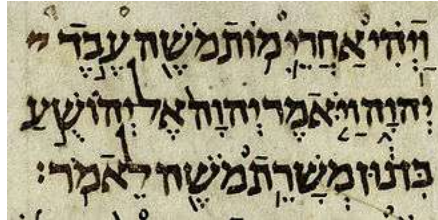 וַיְהִ֗י אַחֲרֵי֙ מ֣וֹת מֹשֶׁ֔ה עֶ֖בֶד
יְהוָ֑ה וַיֹּ֤אמֶר יְהוָה֙ אֶל־יְהוֹשֻׁ֣עַ
בִּן־נ֔וּן מְשָׁרֵ֥ת מֹשֶׁ֖ה לֵאמֹֽר׃